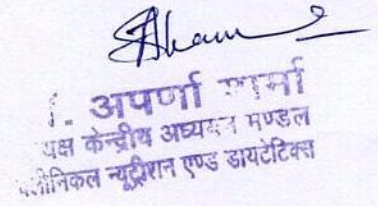 अपर्णा शर्मा
केन्द्रीय अध्ययन मण्डल
क्लीनिकल न्यूट्रीशन एण्ड डायटेटिक्स